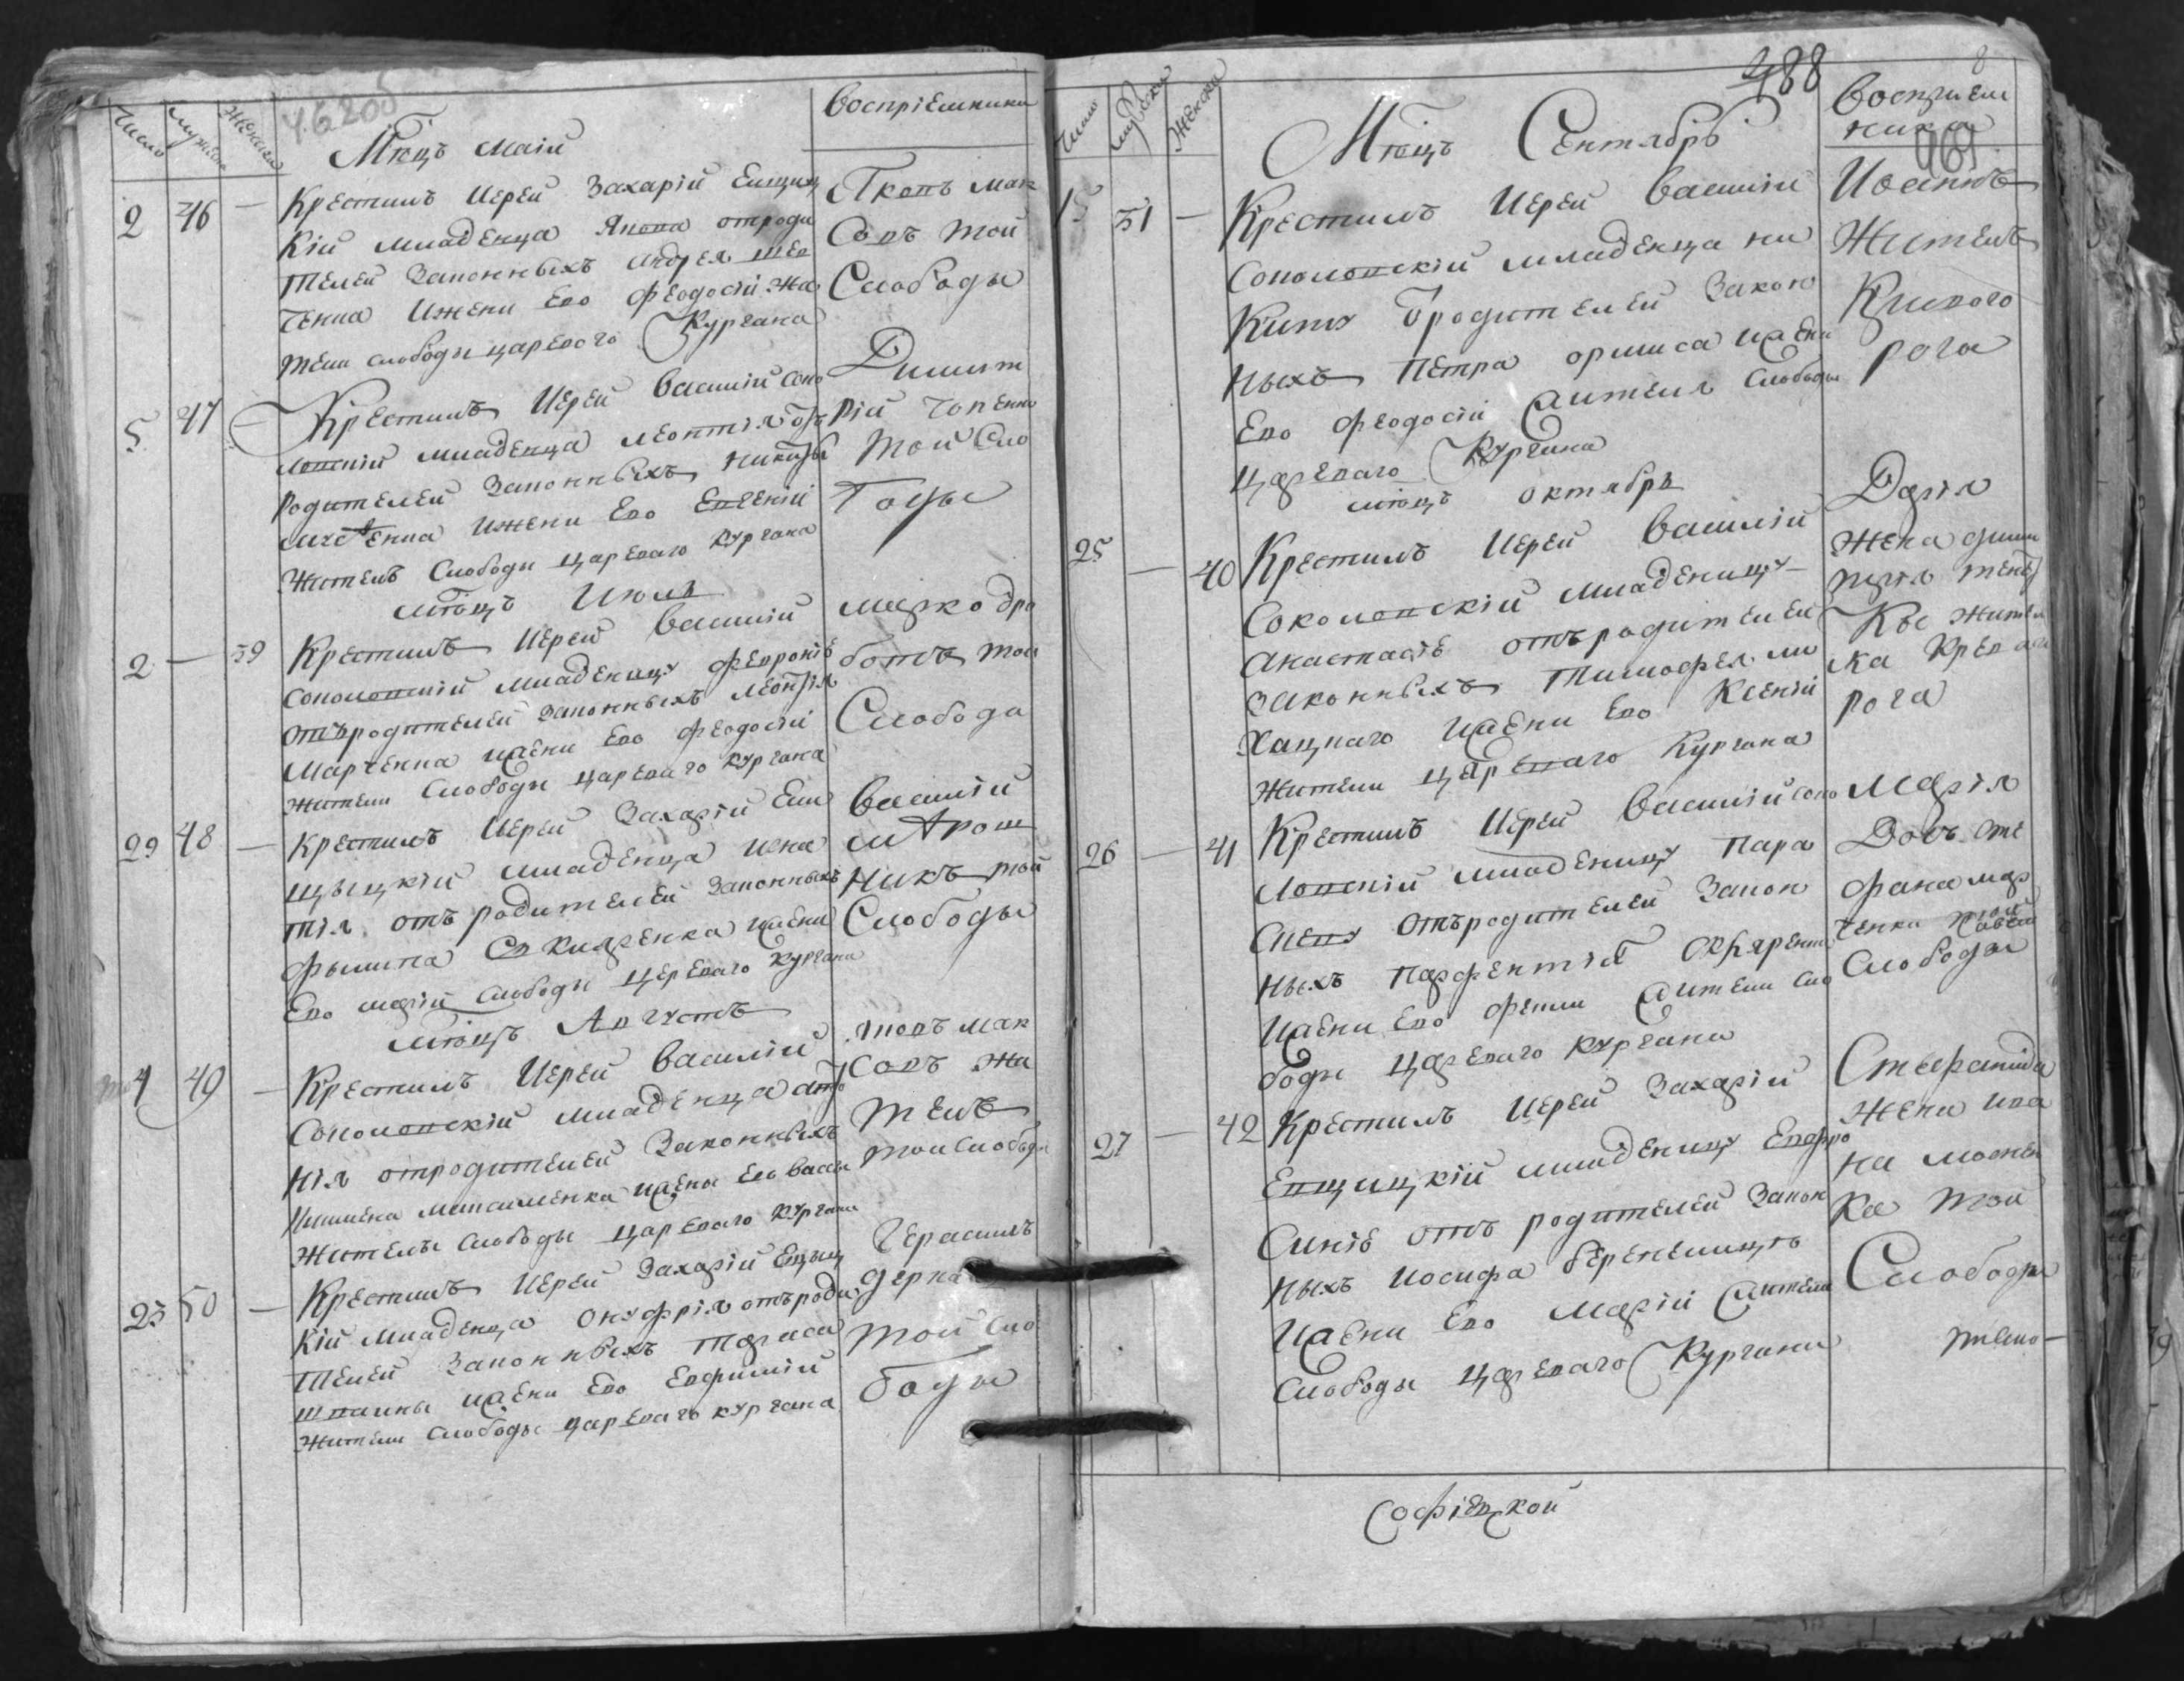 Число
мужска
Женска
462об
Мѣцъ маiй
воспрiемники
2 46 — Крестилъ Иерей Захарiй Евщиц
кiй младенца Якова отроди
телей Законныхъ андрея шев
ченка Ижени Ево Феодосiй жи
тели слободы царевого Кургана
Яковъ мак
Совъ той
Слободы
5 47 — Крестилъ Иерей Василiй Соко
ловскiй младенца леонтiя отъ
родителей Законныхъ никиты
Ижени Ево Евгенiй
Жителъ Слободы Цареваго Кургана
Димит
рiй Чопенко
той Сло
боды
мѣсцъ Июля
2 — 39 Крестилъ Иерей Василiй
Соколовскiй младеницу Февронiѣ
отъродителей Законныхъ леонтiя
Марченка ижени Ево Феодосiй
жители Слободы Цареваго Кургана
марко дро
ботъ той
Слободы
29 48 — Крестилъ Иерей Захарiй Евщ
цкiй младенца Игна
тiя отъ родителей Законныхъ
филипа ижени
Ево марiй слободы Цареваго Кургана
Василiй
мѣрош
никъ той
Слободы
мѣсцъ Августъ
4 49 — Крестилъ Иерей Василiй
Соколовскiй младенца анто
нiя отродителей Законныхъ
максименка ижени Ево Васи
жителы слободы Цареваго Кургана
яковъ мак
Совъ жи
телъ
той слободы
23 50 — Крестилъ Иерей Захарiй Евщиц
кiй младенца Онуфрiя отъроди
телей Законныхъ Тараса
ижени Ево Евфимiй
жители слободы Цареваго Кургана
Герасимъ
той сло
боды
Число
мужска
Женска
488
8
Мѣсцъ Сентябрь
Воспрiем
ника
461
15 51 — Крестилъ Иерей Василiй
Соколовскiй младенца ни
киту отродителей Закон
ныхъ Петра ориша ижени
Ево Феодосiй жителя Слободы
Цареваго Кургана
Иванъ
Житель
Кривого
рога
мѣсцъ октябрь
25 — 40 Крестилъ Иерей Василiй
Соколовскiй младеницу
анастасiѣ отъродителей
законныхъ Тимофея ли
хацкаго ижени Ево Ксенiй
жители Цареваго Кургана
Дарiя
Жена дими
трiя
Жител
ка Крив
рога
26 — 41 Крестилъ Иерей Василiй Соко
ловскiй младеницу Пара
скеву отъродителей Закон
ныхъ Парфентiя
ижени Ево жители сло
боды Цареваго Кургана
Марiя
Довъ сте
фана мар
ченка той
Слободы
27 — 42 Крестилъ Иерей Захарiй
Евщицкiй младеницу Евфро
синiѣ отъ родителей Закон
ныхъ иосифа
ижени Ево Марiй жители
Слободы Цареваго Кургана
жени ива
на
ка той
Слободы
Софiевской